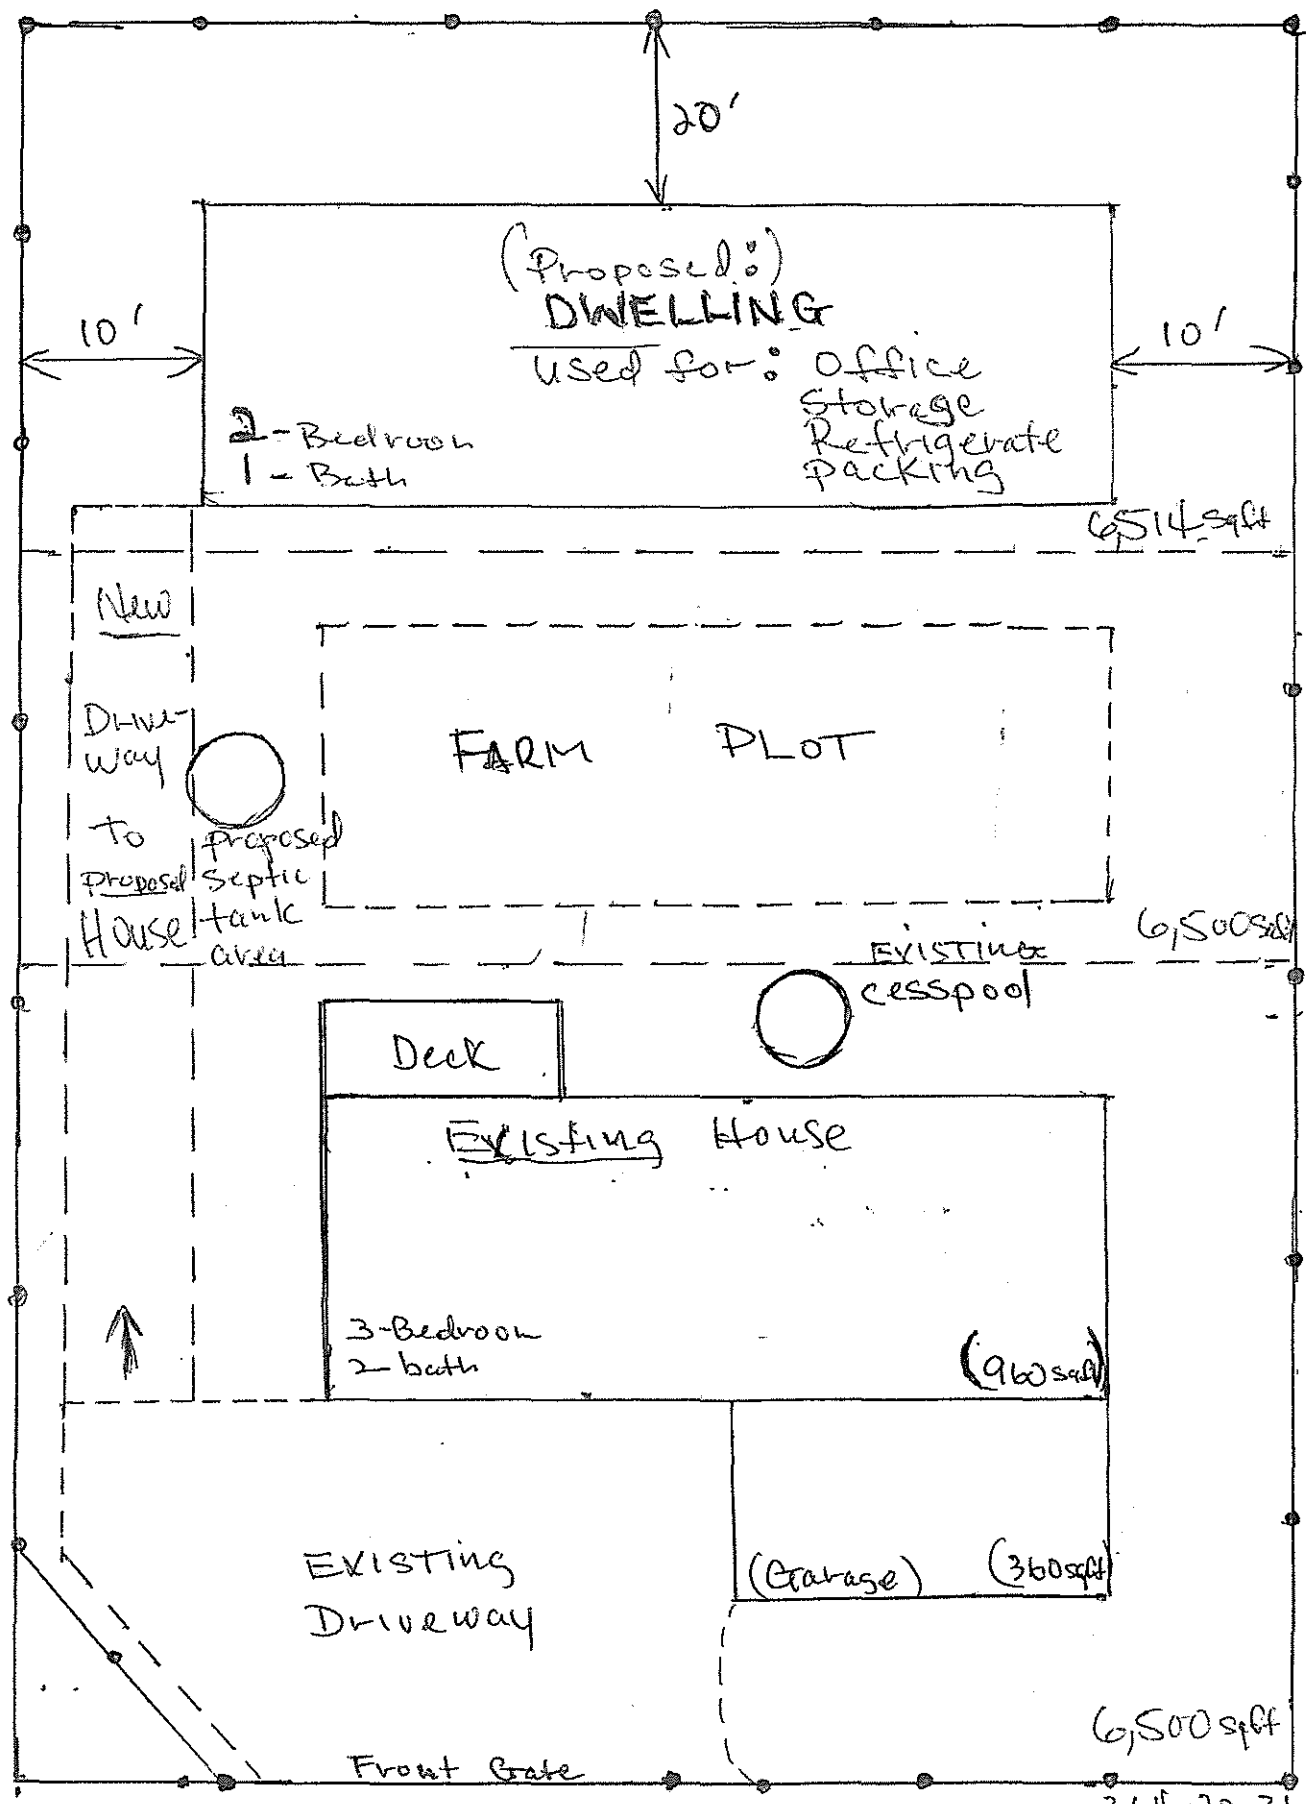 20'
(Proposed:)
DWELLING
used for: Office
Storage
Refrigerate
packing
10'
10'
2-Bedroom
1-Bath
6,514 sqft
New
Drive-
way
To
proposed
House
proposed
septic
tank
area
FARM PLOT
6,500 sqft
EXISTING
cesspool
Deck
Existing House
3-Bedroom
2-bath
(960 sqft)
EXISTING
Driveway
(Garage) (360 sqft)
6,500 sqft
Front Gate